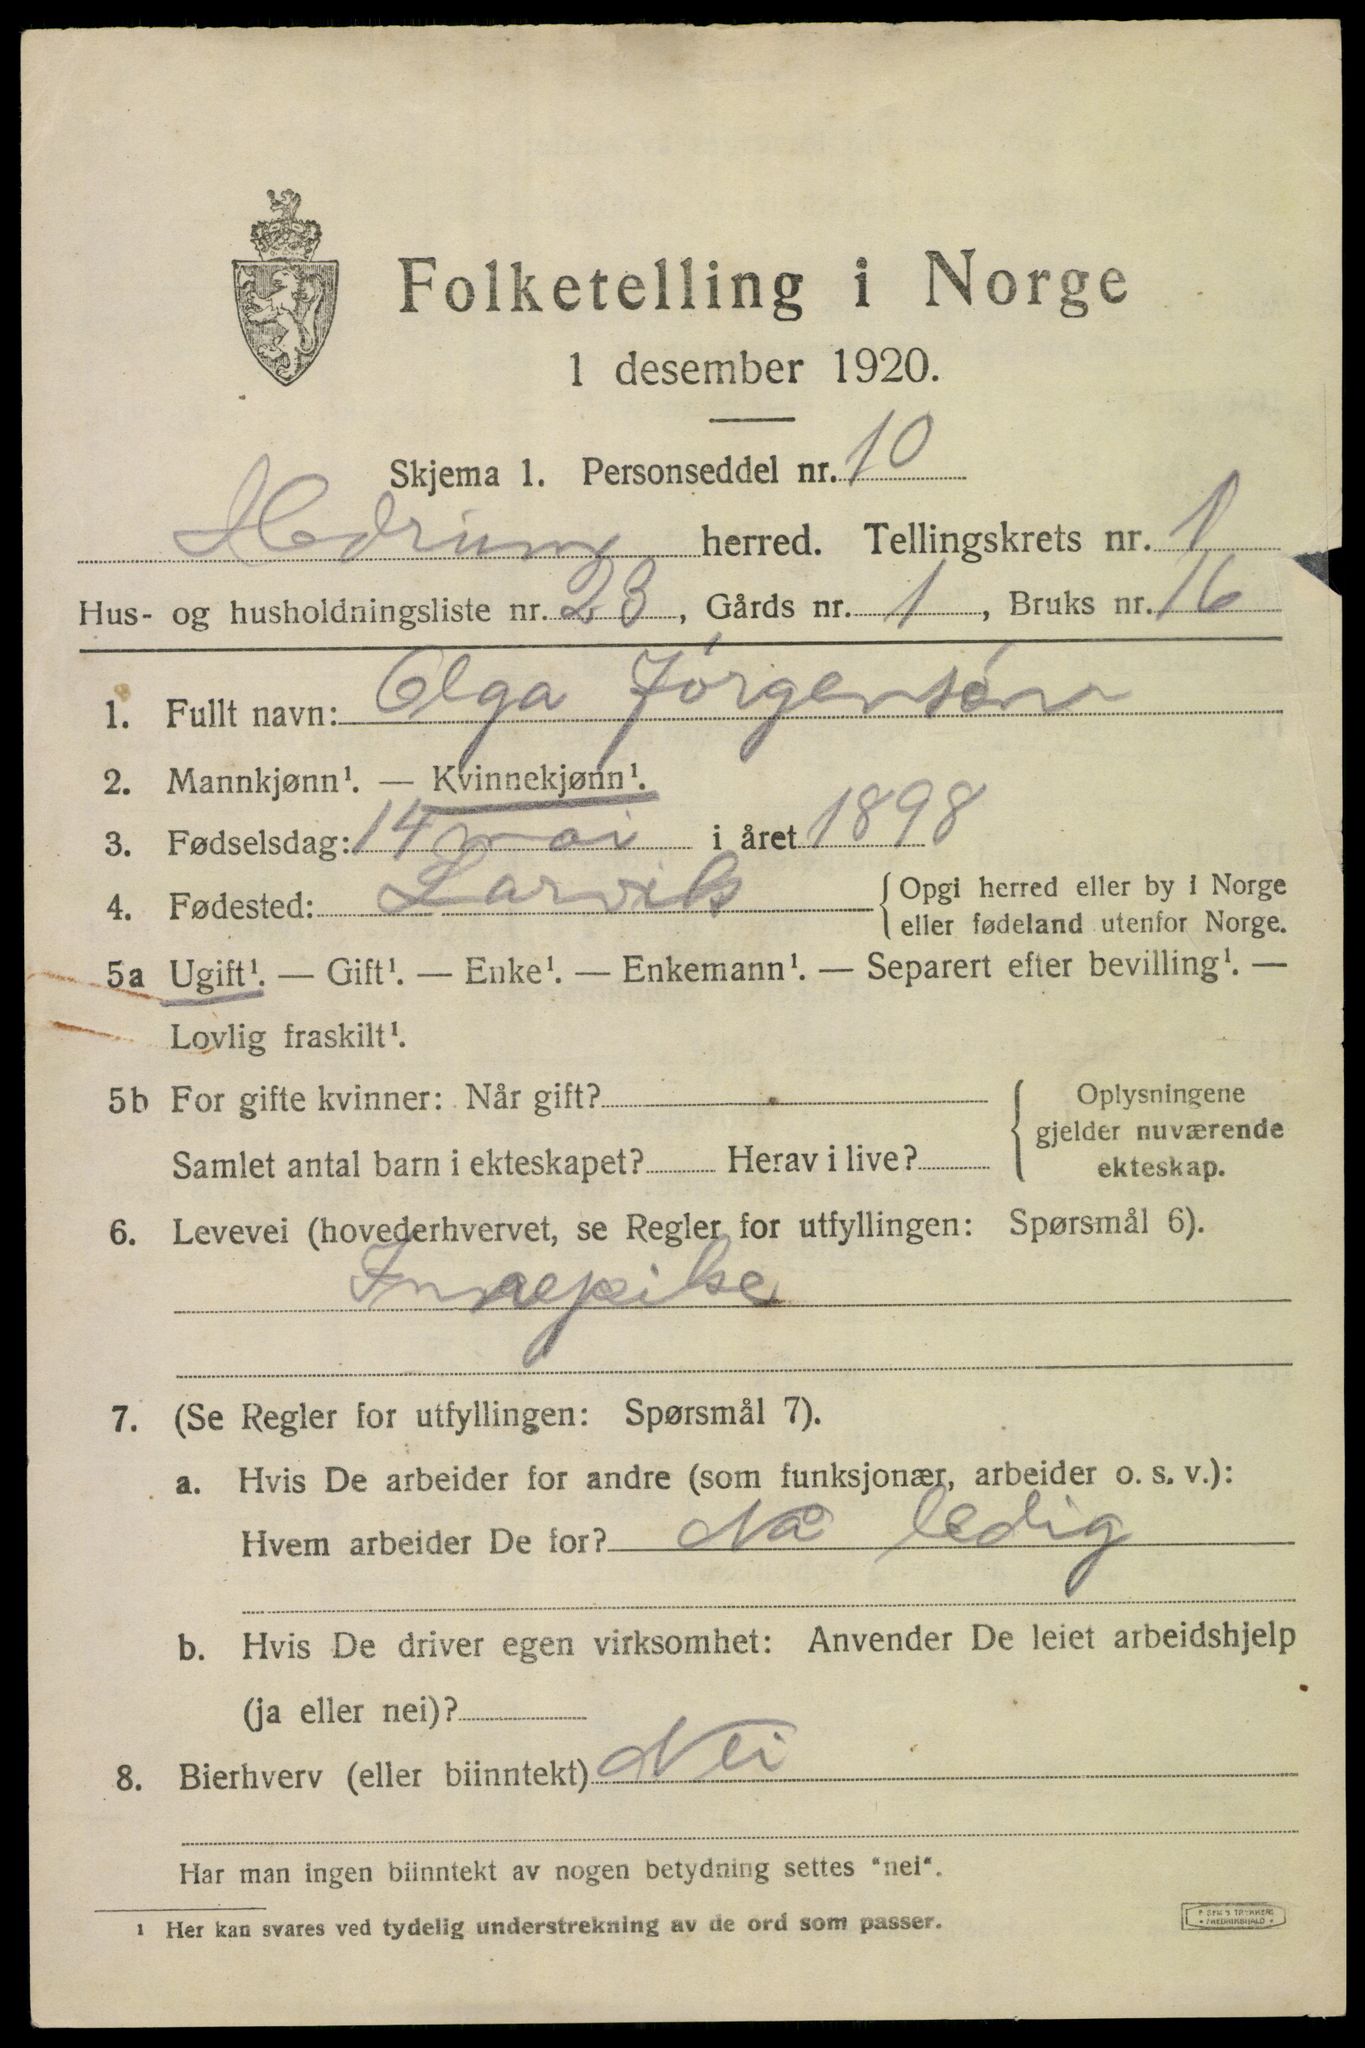 Folketelling i Norge
1 desember 1920.
Skjema 1. Personseddel nr. 10
Hedrum herred. Tellingskrets nr. 1
Hus- og husholdningsliste nr. 23, Gårds nr. 1, Bruks nr. 16
1. Fullt navn: Olga Jørgensen
2. Mannkjønn¹. — Kvinnekjønn¹.
3. Fødselsdag: 14 mai i året 1898
4. Fødested: Larvik { Opgi herred eller by i Norge
eller fødeland utenfor Norge.
5a Ugift¹. — Gift¹. — Enke¹. — Enkemann¹. — Separert efter bevilling¹. —
Lovlig fraskilt¹.
5b For gifte kvinner: Når gift? { Oplysningene
gjelder nuværende
Samlet antal barn i ekteskapet? Herav i live? ekteskap.
6. Levevei (hovederhvervet, se Regler for utfyllingen: Spørsmål 6).
Innepike
7. (Se Regler for utfyllingen: Spørsmål 7).
a. Hvis De arbeider for andre (som funksjonær, arbeider o. s. v.):
Hvem arbeider De for? Nå ledig
b. Hvis De driver egen virksomhet: Anvender De leiet arbeidshjelp
(ja eller nei)?
8. Bierhverv (eller biinntekt) Nei
Har man ingen biinntekt av nogen betydning settes "nei".
¹ Her kan svares ved tydelig understrekning av de ord som passer.